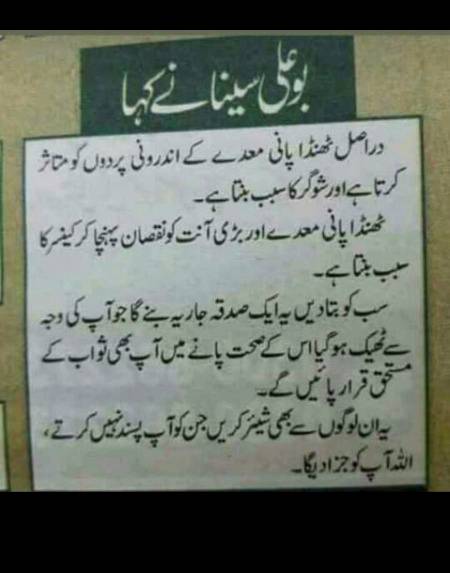 بو علی سینا نے کہا
دراصل ٹھنڈا پانی معدے کے اندرونی پردوں کو متاثر
کرتا ہے اور شوگر کا سبب بنتا ہے۔
ٹھنڈا پانی معدے اور بڑی آنت کو نقصان پہنچا کر کینسر کا
سبب بنتا ہے۔
سب کو بتادیں یہ ایک صدقہ جاریہ بنے گا جو آپ کی وجہ
سے ٹھیک ہو گیا اس کے صحت پانے میں آپ بھی ثواب کے
مستحق قرار پائیں گے۔
یہ ان لوگوں سے بھی شیئر کریں جن کو آپ پسند نہیں کرتے،
اللہ آپ کو جزا دیگا۔